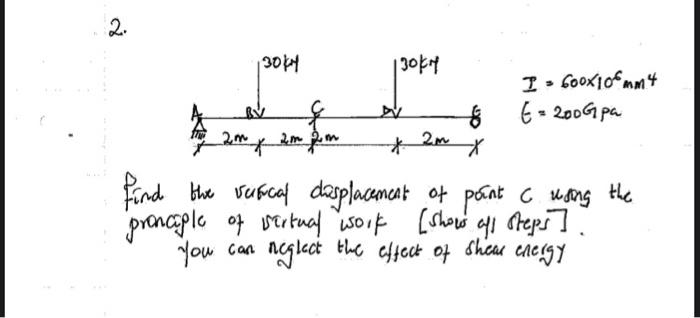 2.
30kN 30kN
I = 600x10⁶ mm⁴
A B C D E
E = 200Gpa
2m 2m 2m 2m
Find the vertical displacement of point C using the
principle of virtual work [show all steps].
You can neglect the effect of shear energy